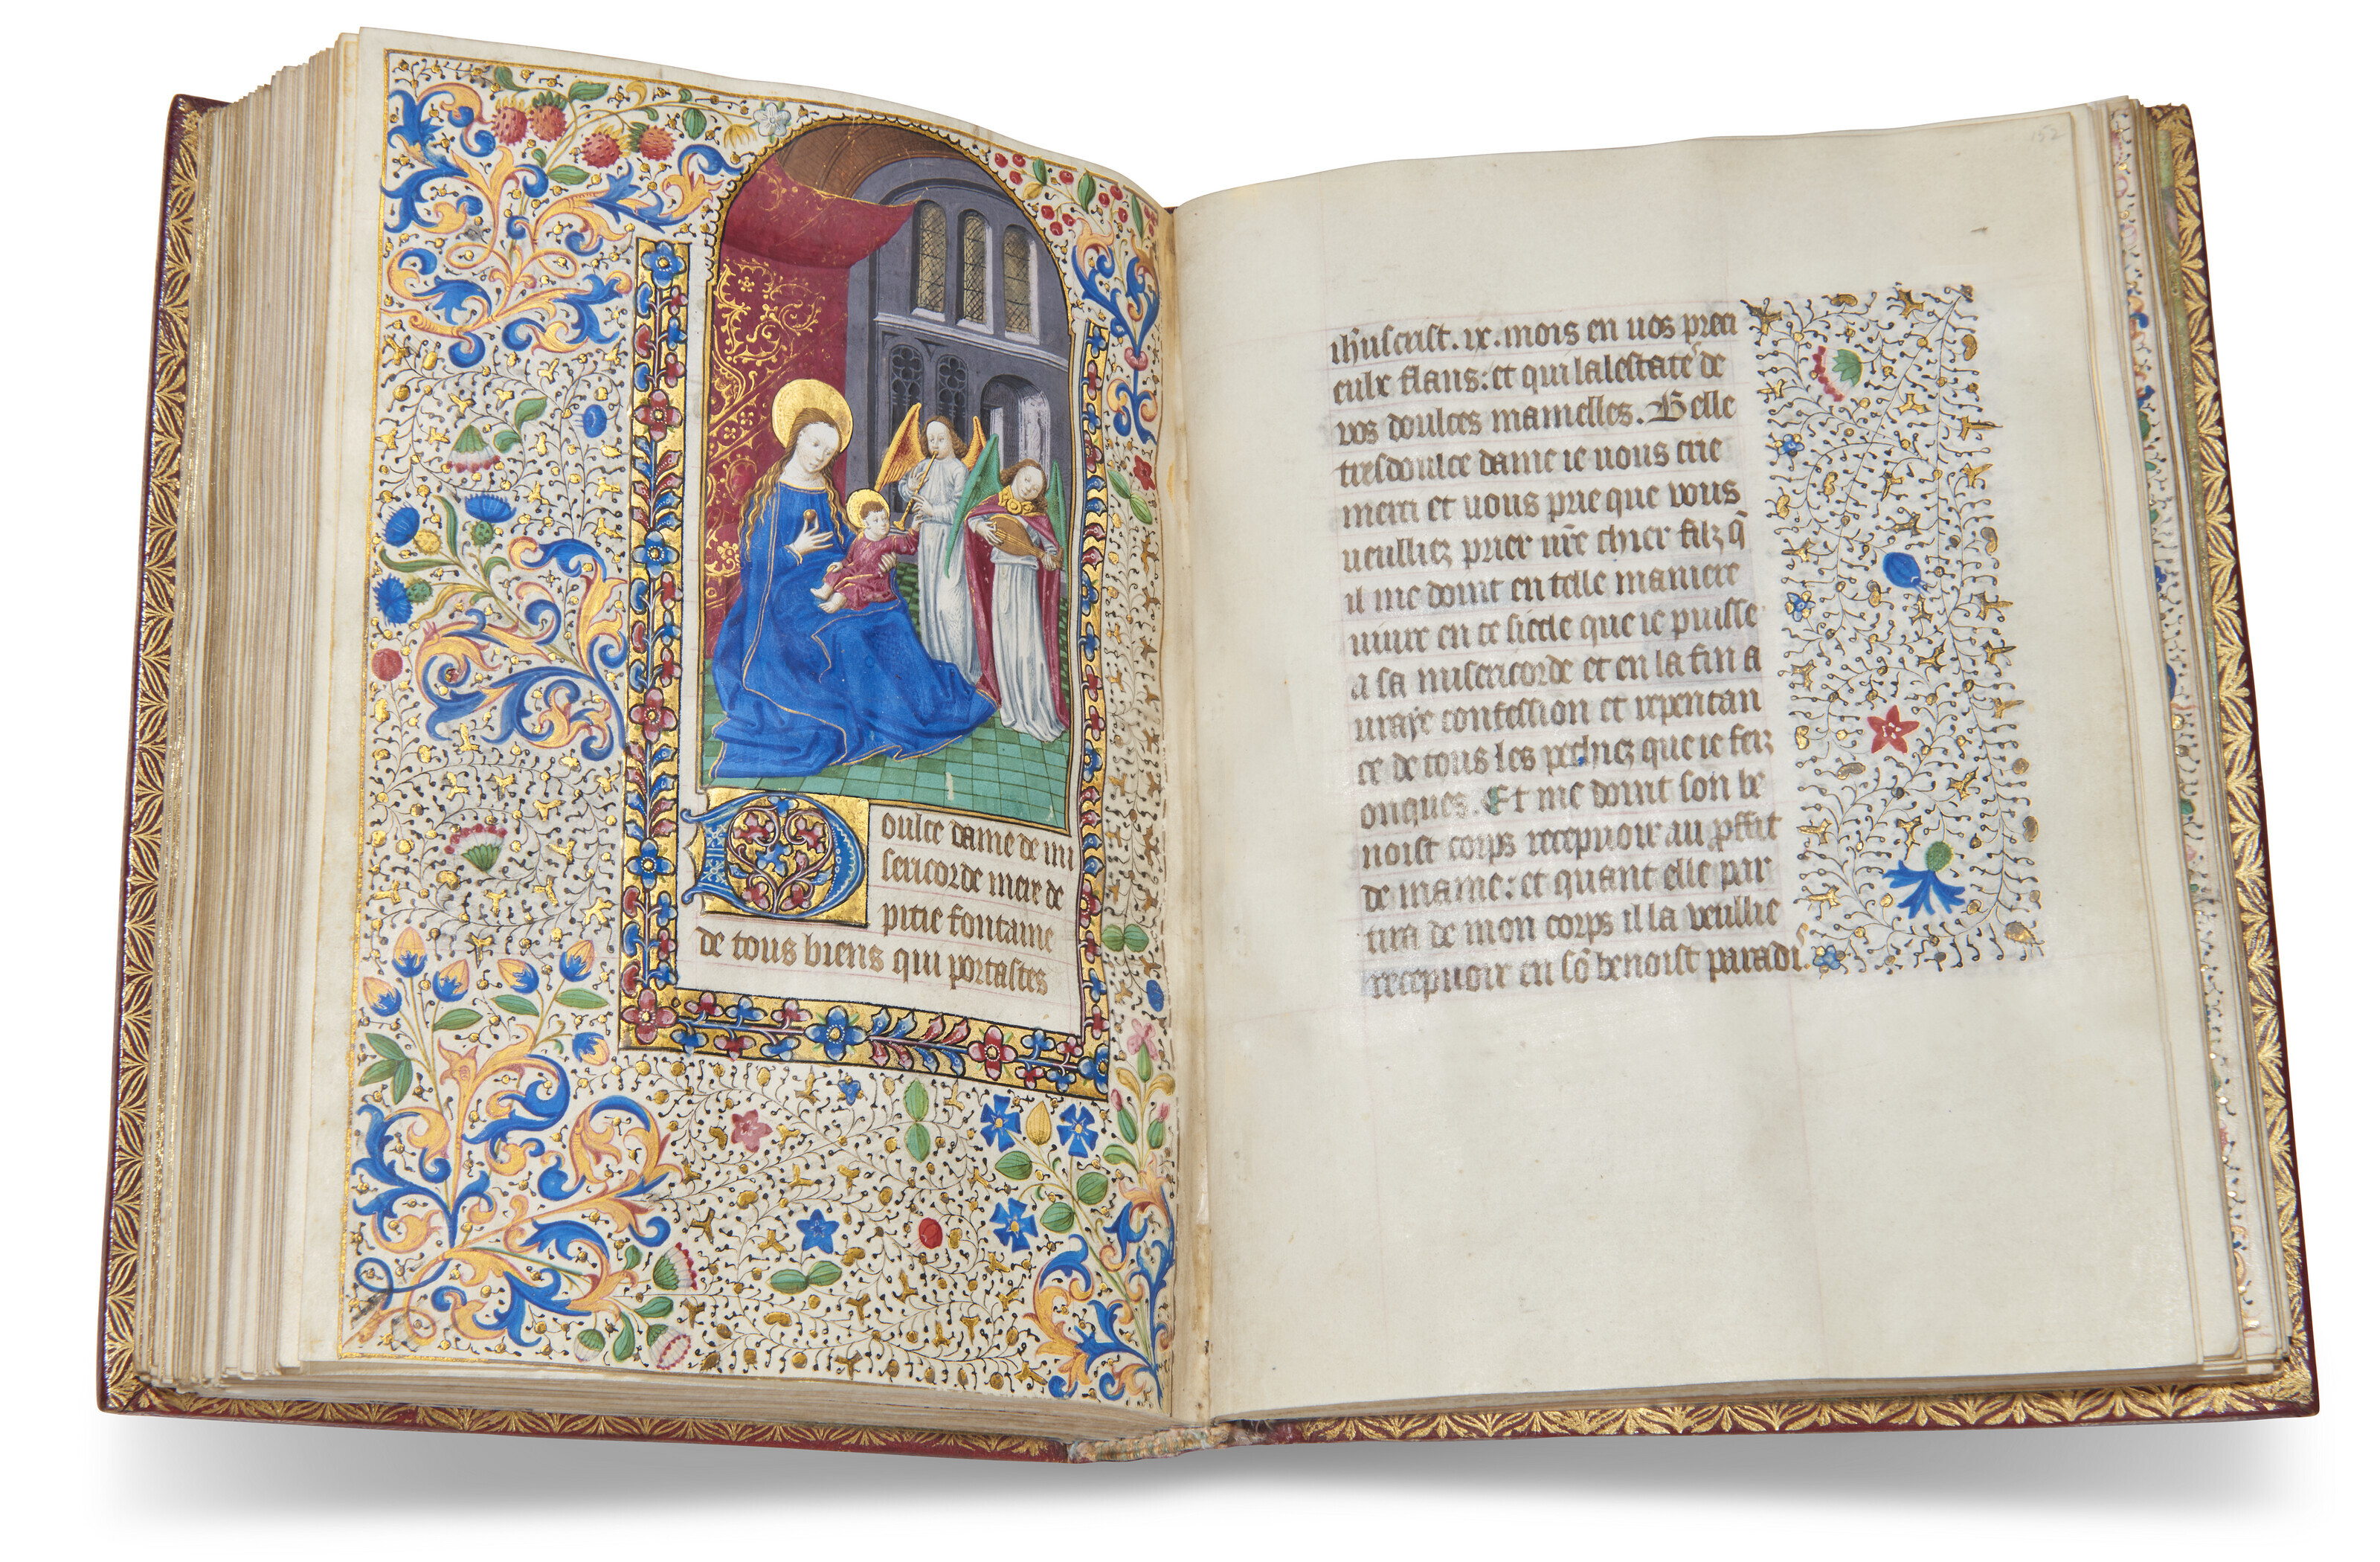 Doulce dame de mi
sericorde mere de
pitie fontaine
de tous biens qui portastes
152
ihũscrist. ix. mois en uos preci
eulx flans: et qui lalestaste de
vos doulces mamelles. Belle
tresdoulce dame ie uous crie
merci et uous prie que vous
ueulliez prier ur̃e chier filz q̃
il me doint en telle maniere
uiure en ce siecle que ie puisse
a sa misericorde et en la fin a
uraye confession et repentan
ce de tous les pechiez que ie feiz
onques. Et me doint son be
noist corps recepuoir au ꝓffit
de mame: et quant elle par
tira de mon corps il la veullie
recepuoir en sõ benoist paradis